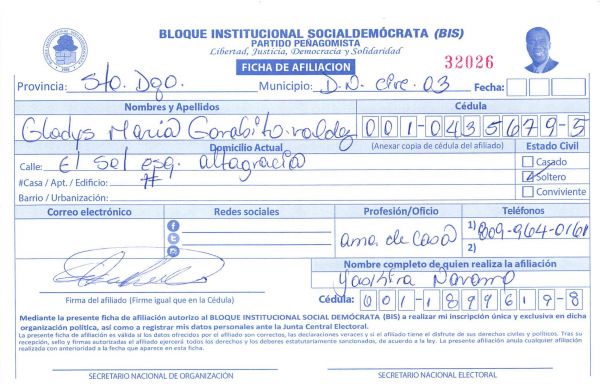 BLOQUE INSTITUCIONAL SOCIALDEMÓCRATA (BIS)
PARTIDO PEÑAGOMISTA
Libertad, Justicia, Democracia y Solidaridad
FICHA DE AFILIACION
32026
Provincia: Sto. Dgo. Municipio: D.N. circ. 03 Fecha:
Nombres y Apellidos Cédula
Gladys Maria Garabito valdez 001-0435679-5
Domicilio Actual (Anexar copia de cédula del afiliado) Estado Civil
Calle: El Sol esq. altagracia Casado
#Casa / Apt. / Edificio: # Soltero
Barrio / Urbanización: Conviviente
Correo electrónico Redes sociales Profesión/Oficio Teléfonos
ama de casa 1) 809-964-0161
2)
Nombre completo de quien realiza la afiliación
Navarro
Firma del afiliado (Firme igual que en la Cédula) Cédula: 001-1899619-8
Mediante la presente ficha de afiliación autorizo al BLOQUE INSTITUCIONAL SOCIAL DEMÓCRATA (BIS) a realizar mi inscripción única y exclusiva en dicha
organización política, así como a registrar mis datos personales ante la Junta Central Electoral.
La presente ficha de afiliación es válida si los datos ofrecidos por el afiliado son correctos, las declaraciones veraces y si el afiliado tiene el disfrute de sus derechos civiles y políticos. Tras su
recepción, sello y firmas autorizadas el afiliado ejercerá todos los derechos y los deberes estatutariamente sancionados, de acuerdo a la ley. La presente afiliación anula cualquier afiliación
realizada con anterioridad a la fecha que aparece en esta ficha.
SECRETARIO NACIONAL DE ORGANIZACIÓN SECRETARIO NACIONAL ELECTORAL